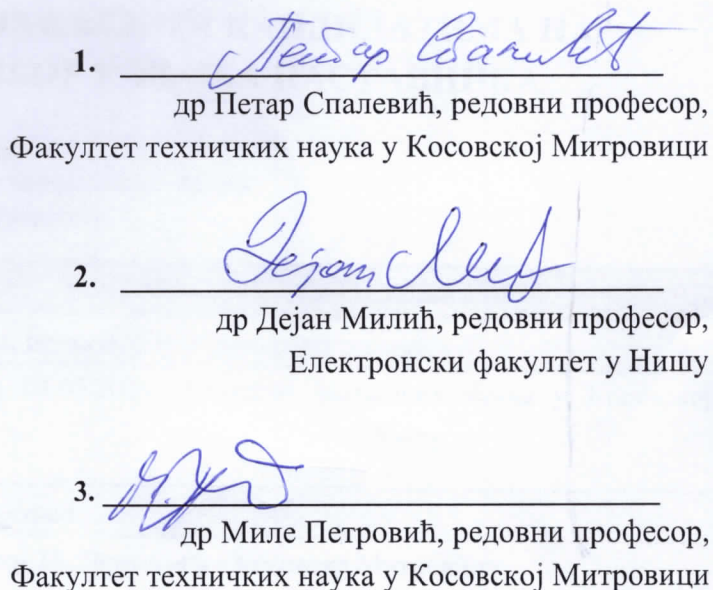 1. Петар Спалевић
др Петар Спалевић, редовни професор,
Факултет техничких наука у Косовској Митровици
2. Дејан Милић
др Дејан Милић, редовни професор,
Електронски факултет у Нишу
3.
др Миле Петровић, редовни професор,
Факултет техничких наука у Косовској Митровици